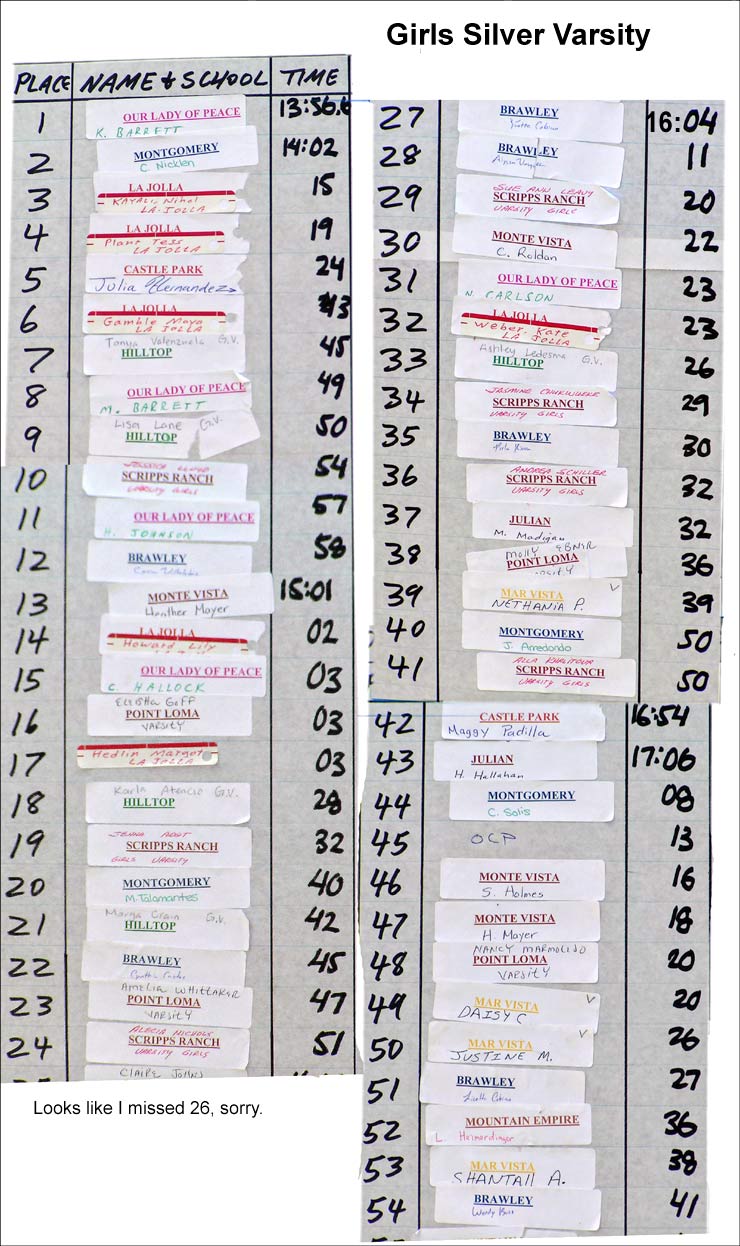 Girls Silver Varsity
PLACE NAME & SCHOOL TIME
1 OUR LADY OF PEACE 13:56.6
K. BARRETT
2 MONTGOMERY 14:02
C. Nicklen
3 LA JOLLA 15
KAYALI, Nihal
LA JOLLA
4 LA JOLLA 19
Plant Tess
LA JOLLA
5 CASTLE PARK 24
Julia Hernandez
6 LA JOLLA 43
Gamble Maya
LA JOLLA
Tonya Valenzuela G.V.
7 HILLTOP 45
8 OUR LADY OF PEACE 49
M. BARRETT
Lisa Lane G.V.
9 HILLTOP 50
JESSICA LLOYD
10 SCRIPPS RANCH 54
VARSITY GIRLS
11 OUR LADY OF PEACE 57
H. JOHNSON
12 BRAWLEY 58
13 MONTE VISTA 15:01
Heather Mayer
14 LA JOLLA 02
Howard, Lily
15 OUR LADY OF PEACE 03
C. HALLOCK
GOFF
16 POINT LOMA 03
VARSITY
17 Hedlin Margot 03
LA JOLLA
Karla Atencio G.V.
18 HILLTOP 28
JENNA
19 SCRIPPS RANCH 32
GIRLS VARSITY
20 MONTGOMERY 40
M. Talamantes
Crain G.V.
21 HILLTOP 42
22 BRAWLEY 45
AMELIA WHITTAKER
23 POINT LOMA 47
VARSITY
ALECIA NICHOLS
24 SCRIPPS RANCH 51
VARSITY GIRLS
CLAIRE JOHNS
Looks like I missed 26, sorry.
27 BRAWLEY 16:04
28 BRAWLEY 11
SUE ANN LEAVY
29 SCRIPPS RANCH 20
VARSITY GIRLS
30 MONTE VISTA 22
C. Roldan
31 OUR LADY OF PEACE 23
N. CARLSON
32 LA JOLLA 23
Weber, Kate
LA JOLLA
Ashley Ledesma G.V.
33 HILLTOP 26
JASMINE CHUKWUEKE
34 SCRIPPS RANCH 29
VARSITY GIRLS
35 BRAWLEY 30
ANDREA SCHILLER
36 SCRIPPS RANCH 32
VARSITY GIRLS
37 JULIAN 32
M. Madigan
MOLLY EBNER
38 POINT LOMA 36
39 MAR VISTA 39
NETHANIA P.
40 MONTGOMERY 50
J. Arredondo
ALLA
41 SCRIPPS RANCH 50
VARSITY GIRLS
42 CASTLE PARK 16:54
Maggy Padilla
43 JULIAN 17:06
H. Hallahan
44 MONTGOMERY 08
C. Solis
45 OCP 13
46 MONTE VISTA 16
S. Holmes
47 MONTE VISTA 18
H. Mayer
NANCY MARMOLEJO
48 POINT LOMA 20
VARSITY
49 MAR VISTA 20
DAISY C
50 MAR VISTA 26
JUSTINE M.
51 BRAWLEY 27
52 MOUNTAIN EMPIRE 36
L. Heimerdinger
53 MAR VISTA 38
SHANTALL A.
54 BRAWLEY 41